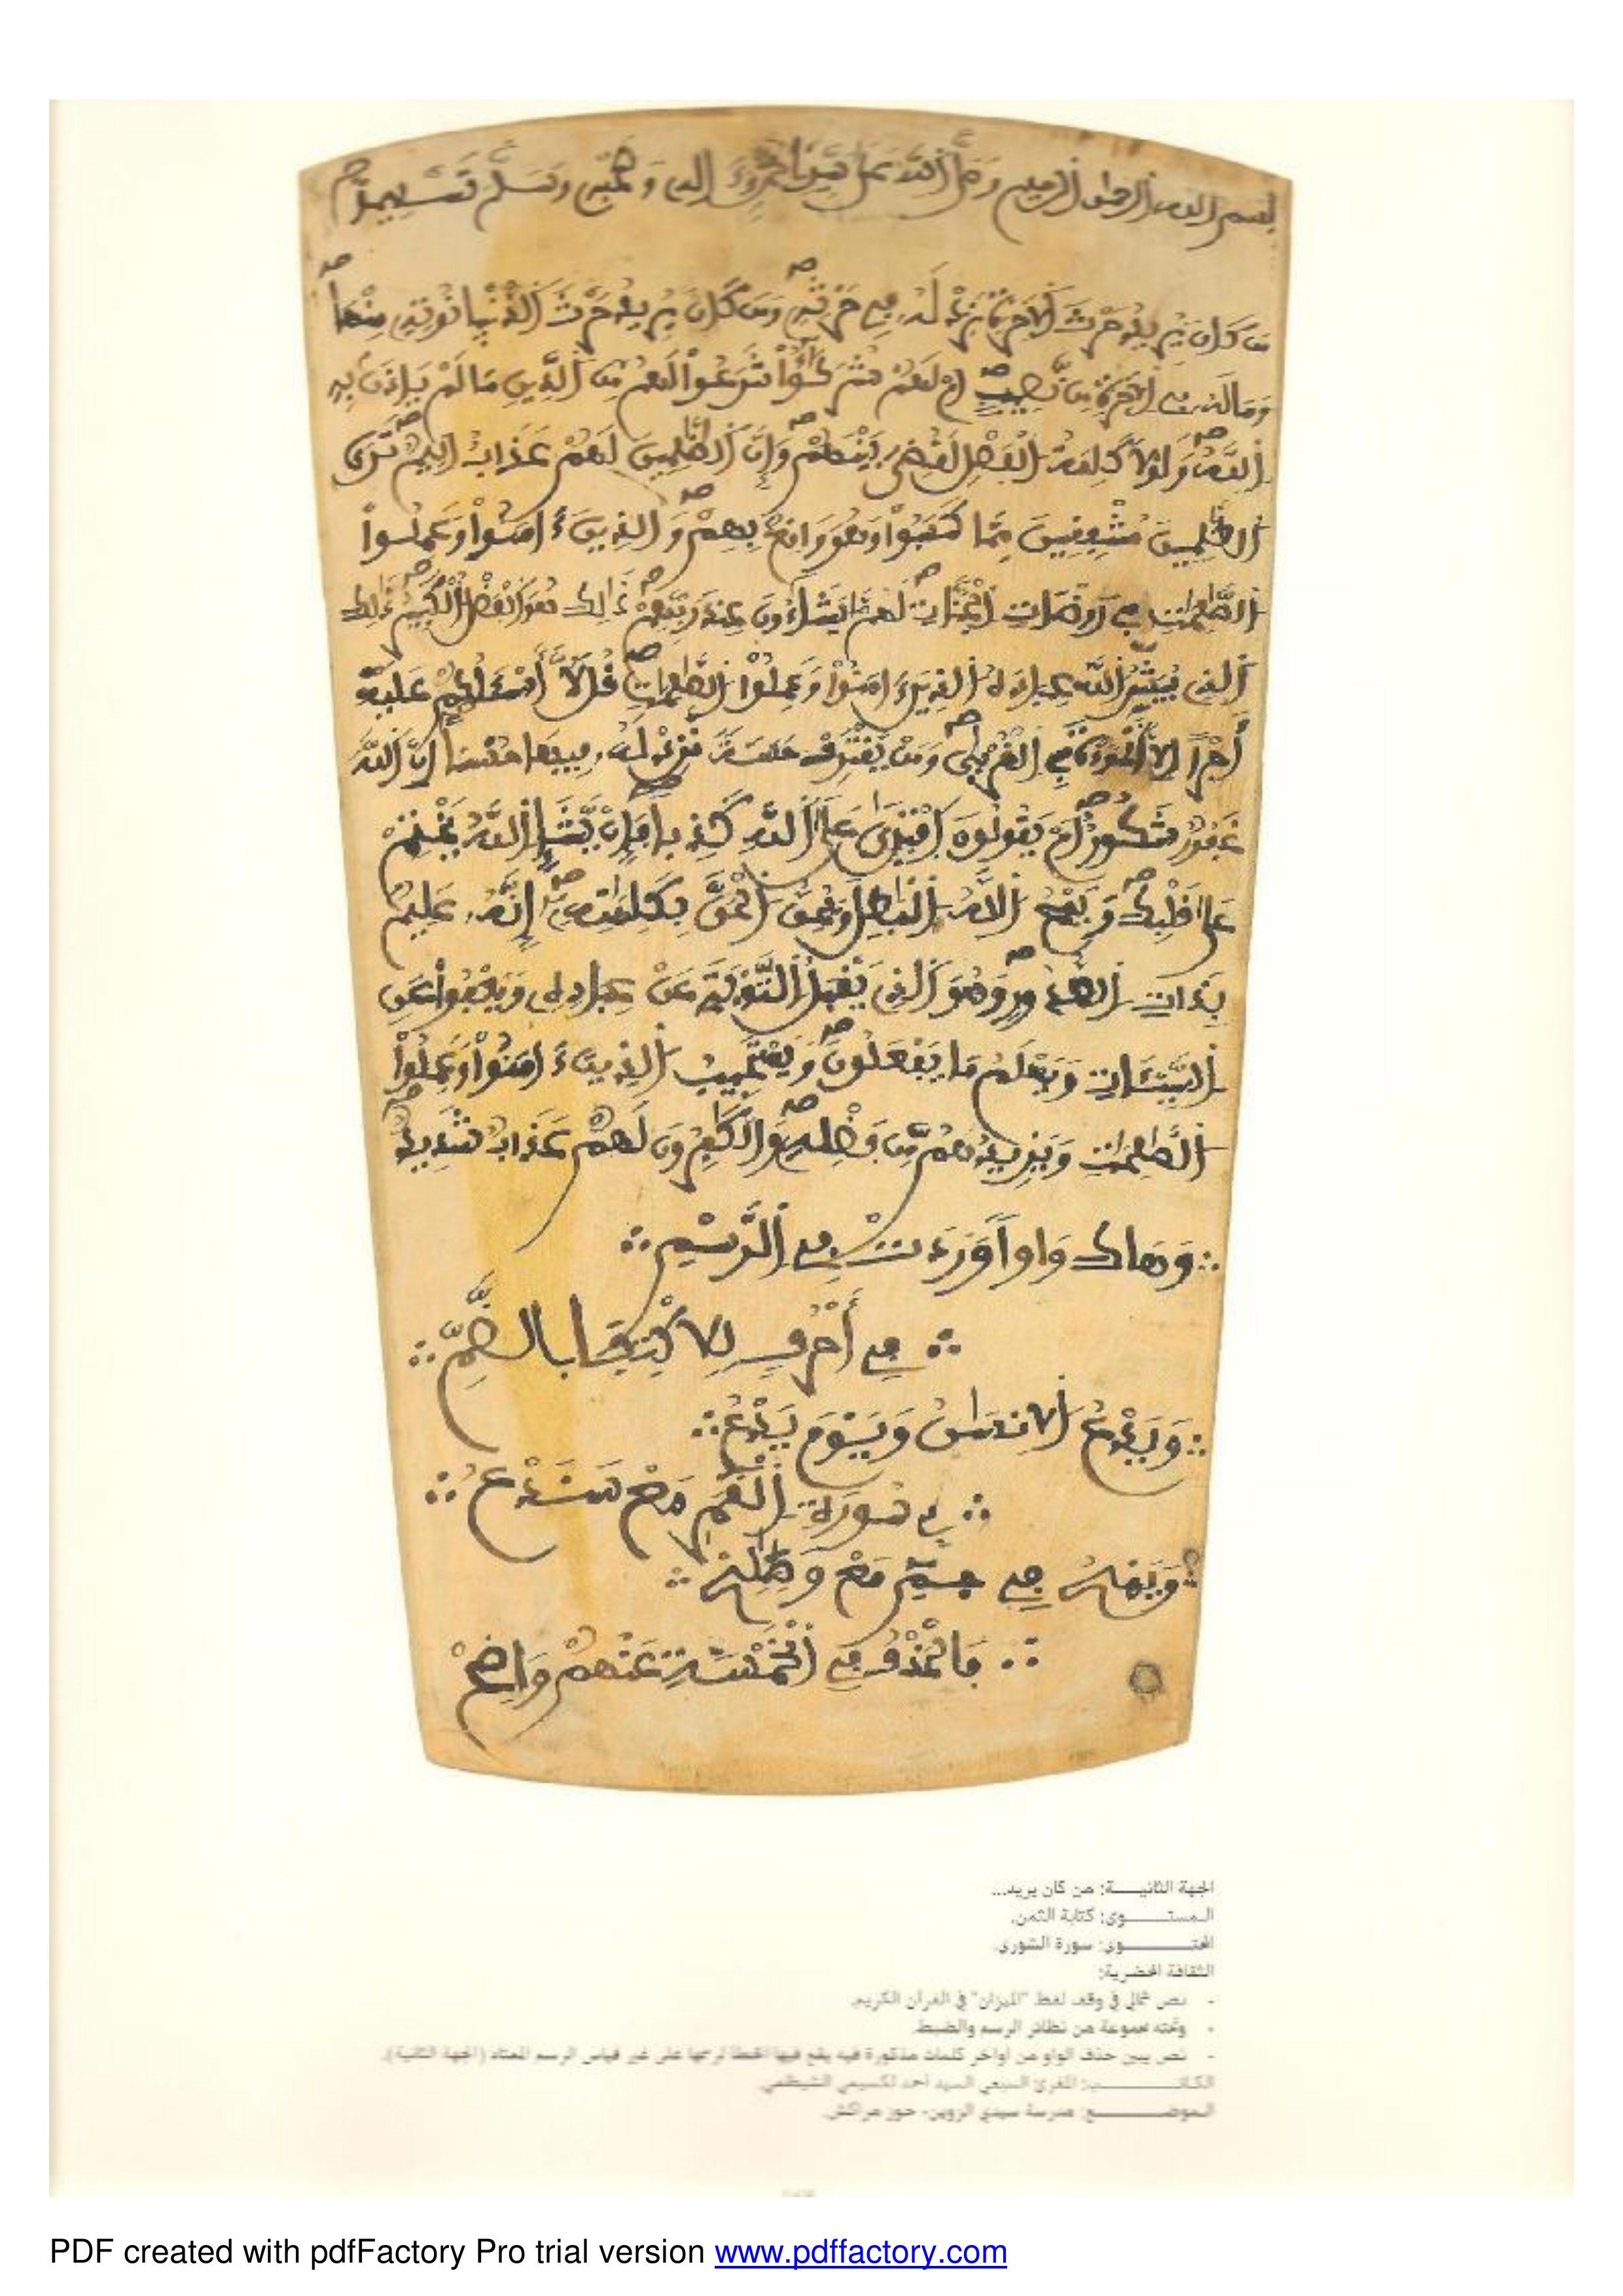 بسم الله الرحمن الرحيم وصلى الله على سيدنا محمد وءاله وصحبه وسلم تسليما
من كان يريد حرث الاخرة نزد له في حرثه ومن كان يريد حرث الدنيا نوته منها
وما له في الاخرة من نصيب ام لهم شركؤا شرعوا لهم من الدين ما لم ياذن به
الله ولولا كلمة الفصل لقضي بينهم وان الظلمين لهم عذاب اليم ترى
الظلمين مشفقين مما كسبوا وهو واقع بهم والذين ءامنوا وعملوا
الصلحت في روضات الجنات لهم ما يشاءون عند ربهم ذالك هو الفضل الكبير ذالك
الذي يبشر الله عباده الذين ءامنوا وعملوا الصلحت قل لا أسئلكم عليه
أجرا الا المودة في القربى ومن يقترف حسنة نزد له فيها حسنا ان الله
غفور شكور ام يقولون افترى على الله كذبا فإن يشإ الله يختم
على قلبك ويمح الله البطل ويحق الحق بكلمته إنه عليم
بذات الصدور وهو الذي يقبل التوبة عن عباده ويعفوا عن
السيئات ويعلم ما يفعلون ويستجيب الذين ءامنوا وعملوا
الصلحت ويزيدهم من فضله والكفرون لهم عذاب شديد
وهاك واوا وردت في الرسم
في أحرف للاكتفا بالضم
ويدع الانسن ويوم يدع
في سورة القمر مع سندع
ويمح في حم مع وصلح
فالحذف في الخمسة عنهم واضح
الجهة الثانيـــة: من كان يريد...
المستـــوى: كتابة الثمن.
المحتـــوى: سورة الشورى.
الثقافة الحضرية:
- نص نحلي في وقف لفظ "الميزان" في القرآن الكريم.
- وتحته مجموعة من نظائر الرسم والضبط.
- نص يبين حذف الواو من أواخر كلمات مذكورة فيه يقع فيها الخطأ لرسمها على غير قياس الرسم المعتاد (الجهة الثانية).
الكاتـــب: المقرئ السبعي السيد أحمد لكسيمي الشيظمي.
الموضـــع: مدرسة سيدي الزوين- حوز مراكش.
PDF created with pdfFactory Pro trial version www.pdffactory.com